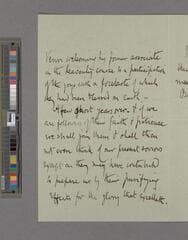 welcoming by former associates
in the heavenly courts to a participation
of the joy with a foretaste of which
they had been blessed on earth.
A few short years over & if we
are followers of their faith & patience
we shall join them & shall then
not even think of our present sorrows
as they may have contributed
to prepare us by their purifying
effects for the glory that